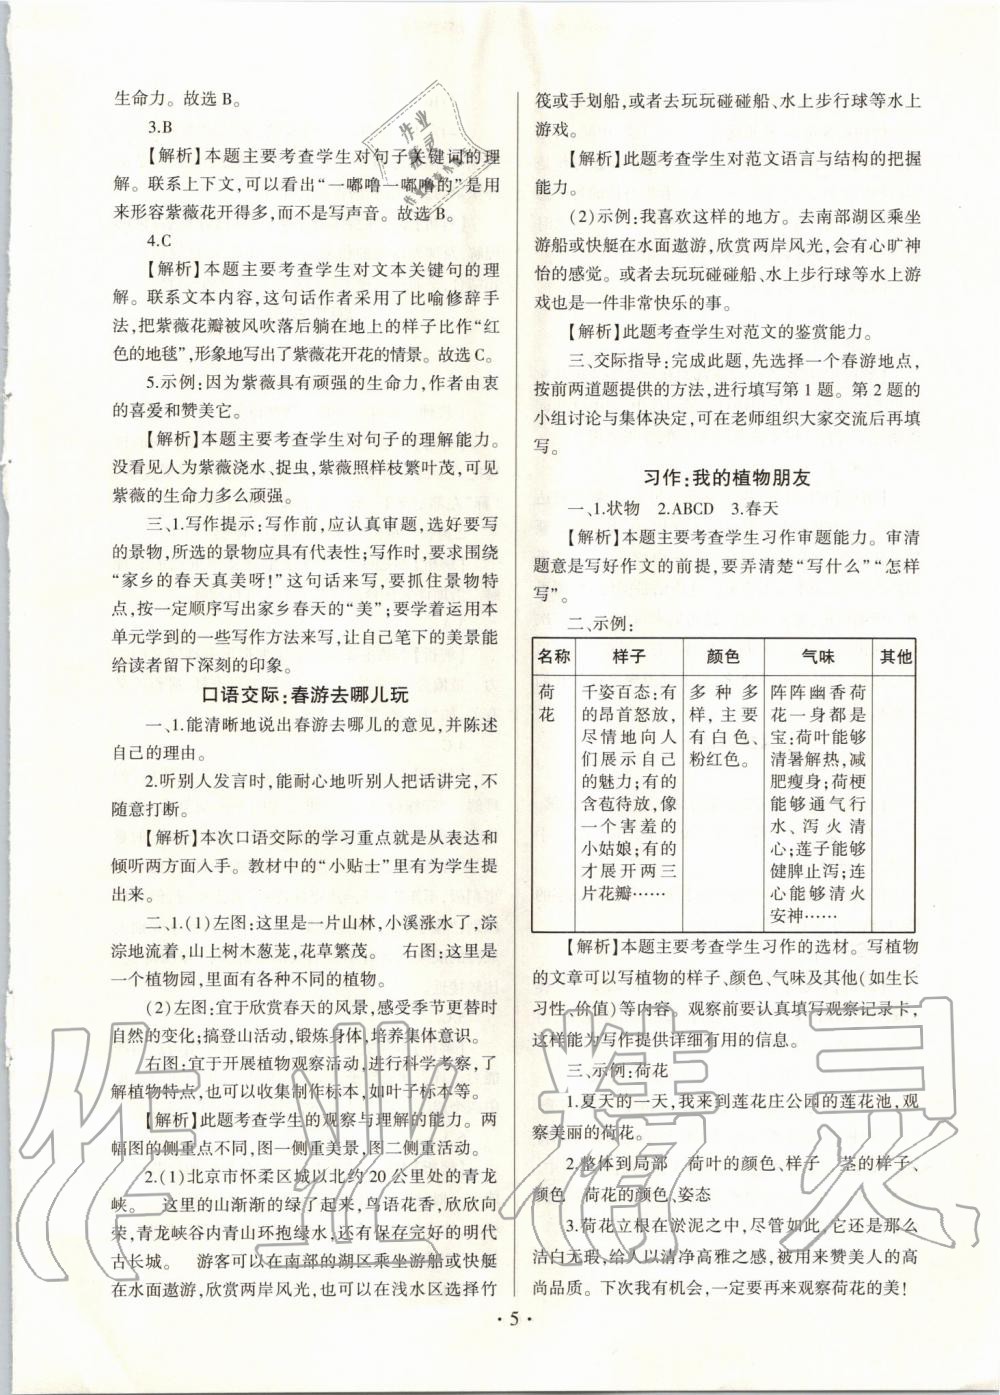 生命力。故选 B。
3.B
【解析】本题主要考查学生对句子关键词的理
解。联系上下文,可以看出“一嘟噜一嘟噜的”是用
来形容紫薇花开得多,而不是写声音。故选 B。
4.C
【解析】本题主要考查学生对文本关键句的理
解。联系文本内容,这句话作者采用了比喻修辞手
法,把紫薇花瓣被风吹落后躺在地上的样子比作“红
色的地毯”,形象地写出了紫薇花开花的情景。故选 C。
5.示例:因为紫薇具有顽强的生命力,作者由衷
的喜爱和赞美它。
【解析】本题主要考查学生对句子的理解能力。
没看见人为紫薇浇水、捉虫,紫薇照样枝繁叶茂,可见
紫薇的生命力多么顽强。
三、1.写作提示:写作前,应认真审题,选好要写
的景物,所选的景物应具有代表性;写作时,要求围绕
“家乡的春天真美呀!”这句话来写,要抓住景物特
点,按一定顺序写出家乡春天的“美”;要学着运用本
单元学到的一些写作方法来写,让自己笔下的美景能
给读者留下深刻的印象。
口语交际:春游去哪儿玩
一、1.能清晰地说出春游去哪儿的意见,并陈述
自己的理由。
2.听别人发言时,能耐心地听别人把话讲完,不
随意打断。
【解析】本次口语交际的学习重点就是从表达和
倾听两方面入手。教材中的“小贴士”里有为学生提
出来。
二、1.(1)左图:这里是一片山林,小溪涨水了,淙
淙地流着,山上树木葱茏,花草繁茂。 右图:这里是
一个植物园,里面有各种不同的植物。
(2)左图:宜于欣赏春天的风景,感受季节更替时
自然的变化;搞登山活动,锻炼身体,培养集体意识。
右图:宜于开展植物观察活动,进行科学考察,了
解植物特点,也可以收集制作标本,如叶子标本等。
【解析】此题考查学生的观察与理解的能力。两
幅图的侧重点不同,图一侧重美景,图二侧重活动。
2.(1)北京市怀柔区城以北约 20 公里处的青龙
峡。 这里的山渐渐的绿了起来,鸟语花香,欣欣向
荣,青龙峡谷内青山环抱绿水,还有保存完好的明代
古长城。 游客可以在南部的湖区乘坐游船或快艇
在水面遨游,欣赏两岸风光,也可以在浅水区选择竹
筏或手划船,或者去玩玩碰碰船、水上步行球等水上
游戏。
【解析】此题考查学生对范文语言与结构的把握
能力。
(2)示例:我喜欢这样的地方。去南部湖区乘坐
游船或快艇在水面遨游,欣赏两岸风光,会有心旷神
怡的感觉。或者去玩玩碰碰船、水上步行球等水上游
戏也是一件非常快乐的事。
【解析】此题考查学生对范文的鉴赏能力。
三、交际指导:完成此题,先选择一个春游地点,
按前两道题提供的方法,进行填写第 1 题。第 2 题的
小组讨论与集体决定,可在老师组织大家交流后再填
写。
习作:我的植物朋友
一、1.状物 2.ABCD 3.春天
【解析】本题主要考查学生习作审题能力。审清
题意是写好作文的前提,要弄清楚“写什么”“怎样
写”。
二、示例:
名称 样子 颜色 气味 其他
荷
花
千姿百态:有
的昂首怒放,
尽情地向人
们展示自己
的魅力;有的
含苞待放,像
一个害羞的
小姑娘;有的
才展开两三
片花瓣……
多种多
样,主要
有白色、
粉红色。
阵阵幽香荷
花一身都是
宝:荷叶能够
清暑解热,减
肥瘦身;荷梗
能够通气行
水、泻火清
心;莲子能够
健脾止泻;莲
心能够清火
安神……
【解析】本题主要考查学生习作的选材。写植物
的文章可以写植物的样子、颜色、气味及其他(如生长
习性、价值)等内容。观察前要认真填写观察记录卡,
这样能为写作提供详细有用的信息。
三、示例:荷花
1.夏天的一天,我来到莲花庄公园的莲花池,观
察美丽的荷花。
2.整体到局部 荷叶的颜色、样子 茎的样子、
颜色 荷花的颜色、姿态
3.荷花立根在淤泥之中,尽管如此,它还是那么
洁白无瑕,给人以清净高雅之感,被用来赞美人的高
尚品质。下次我有机会,一定要再来观察荷花的美!
• 5 •
作业精灵
作业
精灵